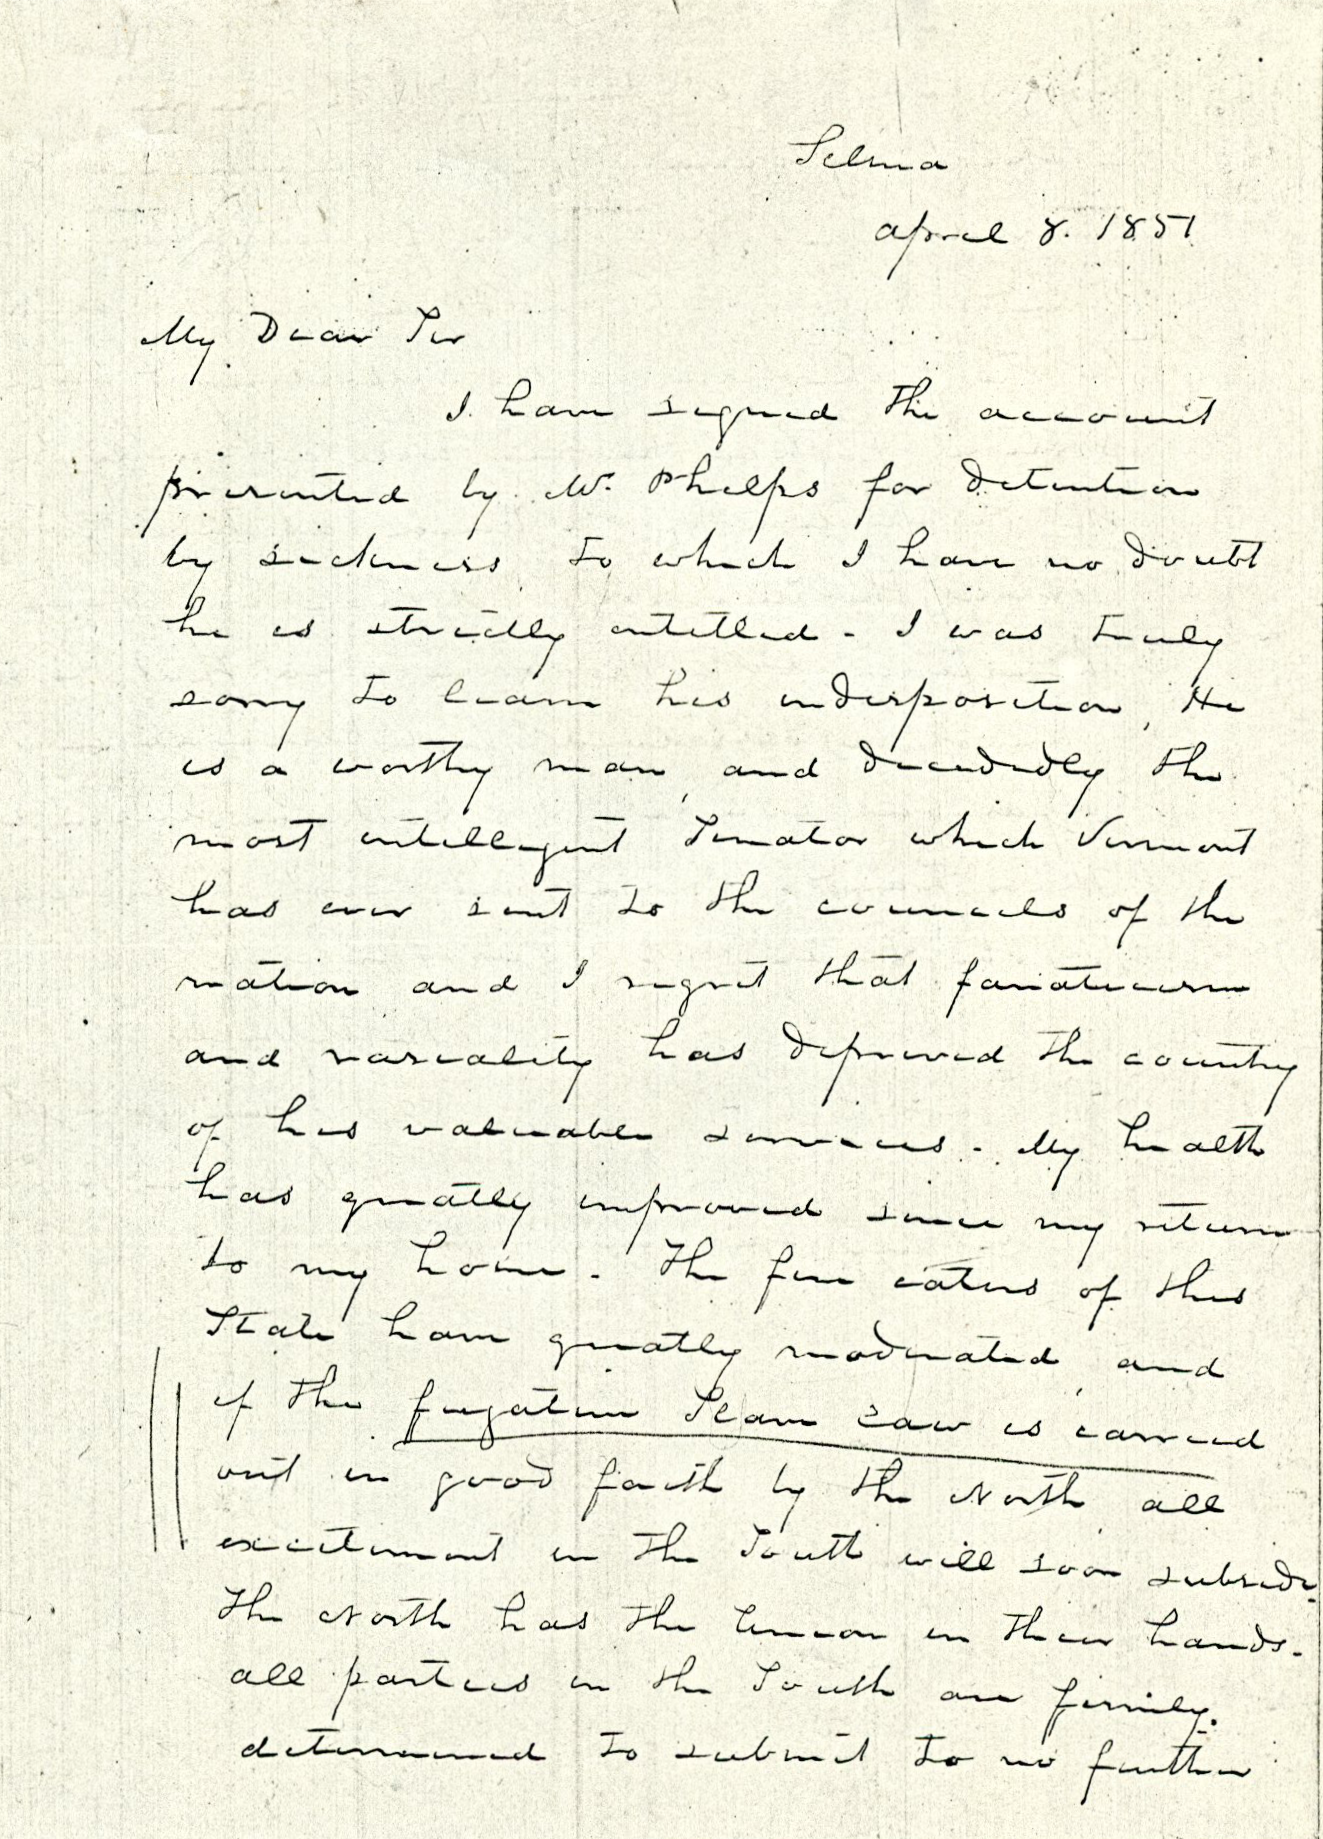 Selma
April 8. 1851
My Dear Sir
I have signed the account
presented by Mr. Phelps for detention
by sickness to which I have no doubt
he is strictly entitled - I was truly
sorry to learn his indisposition, He
is a worthy man, and decidedly the
most intelligent Senator which Vermont
has ever sent to the councils of the
nation and I regret that fanaticism
and rascality has deprived the country
of his valuable services - My health
has greatly improved since my return
to my home - The fire eaters of this
State have greatly moderated, and
if the fugative Slave Law is carried
out in good faith by the North all
excitement in the South will soon subside.
The North has the Union in their hands -
all parties in the South are firmly
determined to submit to no further